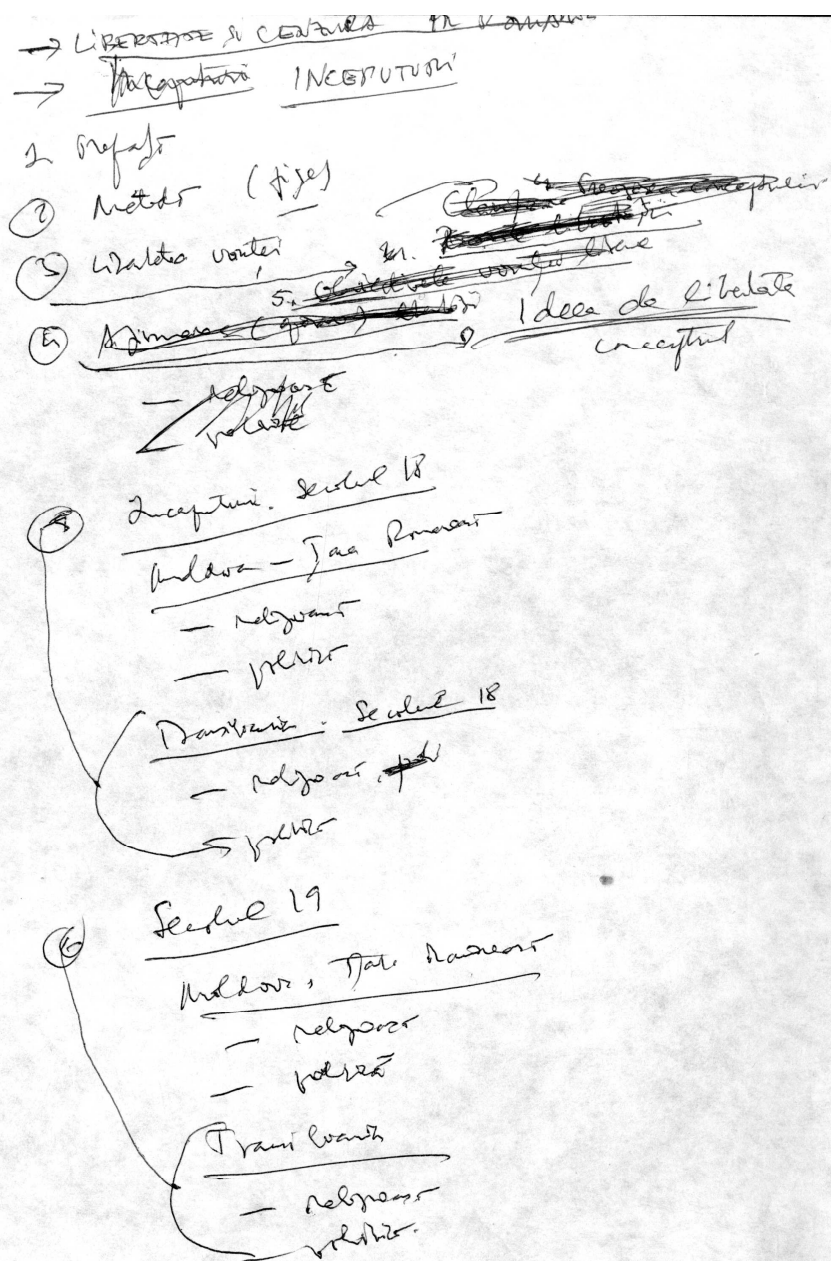 → LIBERTATE SI CENZURA IN ROMANIA
→ Inceputuri INCEPUTURI
1 Prefață
2 Metodă (fișe)
3 Libertatea voinței
4
Ideea de libertate
conceptul
— religioasă
politică
5 Inceputuri. Secolul 18
Moldova — Țara Românească
— religioasă
— politică
Transilvania. Secolul 18
— religioasă,
politică
6 Secolul 19
Moldova, Țara Românească
— religioasă
— politică
Transilvania
— religioasă
politică.